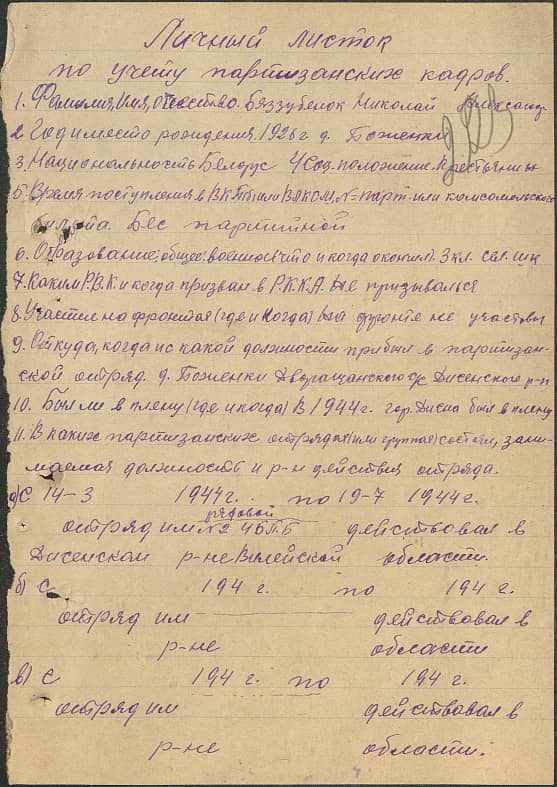 Личный листок
по учету партизанских кадров.
1. Фамилия, Имя, отчество. Беззубенок Николай Александ
2. Год и место рождения. 1926г д. Боженки
3. Национальность Белорус 4 Соц. положение Крестьянин
5. Время поступления в ВКП(б) или ВЛКСМ, N= парт. или комсомольского
билета. Бес партийной
6. Образование: общее: военное (что и когда окончил). 3 кл. сел. шк
7. Каким Р.В.К и когда призван в Р.К.К.А. не призывался
8. Участие на фронтах (где и когда) на фронте не участвов
9. Откуда, когда и с какой должности прибыл в партизан-
ской отряд. д. Боженки Дворащанского с/с Дисенского р-н
10. Был ли в плену (где и когда) В 1944г. гор. Дисна был в плену
11. В каких партизанских отрядах (или группах) состоял, зани-
маемая должность и р-н действия отряда.
а) С 14-3 1944г. по 19-7 1944г.
рядовой
отряд им. №2 4Б.П.Б действовал в
Дисенском р-не Вилейской области.
б) С 194 г. по 194 г.
отряд им действовал в
р-не области
в) С 194 г. по 194 г.
отряд им действовал в
р-не области.